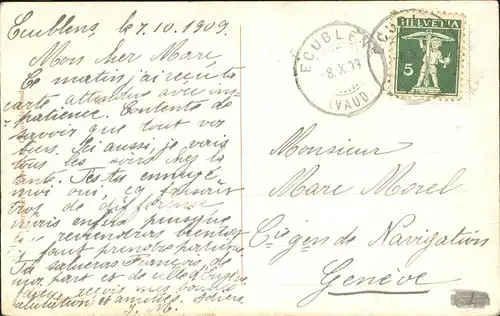 Ecublens, le 7.10.1909.
Mon cher Marc,
Ce matin, j'ai reçu ta
carte, attendue avec im-
patience. Contente de
savoir que tout va
bien. Ici aussi, je vais
tous les soirs chez la
tante. T'es-tu ennuyé
moi oui, ça faisait
trop de
mais enfin puisque
tu reviendras bientôt
faut prendre patience.
Tu salueras François de
ma part et
adieu, reçois mes bonnes
salutation et amitiés.
J. M.
ECUBLENS
8.X.09
(VAUD)
HELVETIA
5
Monsieur
Marc Morel
Cie gen de Navigation
Genève